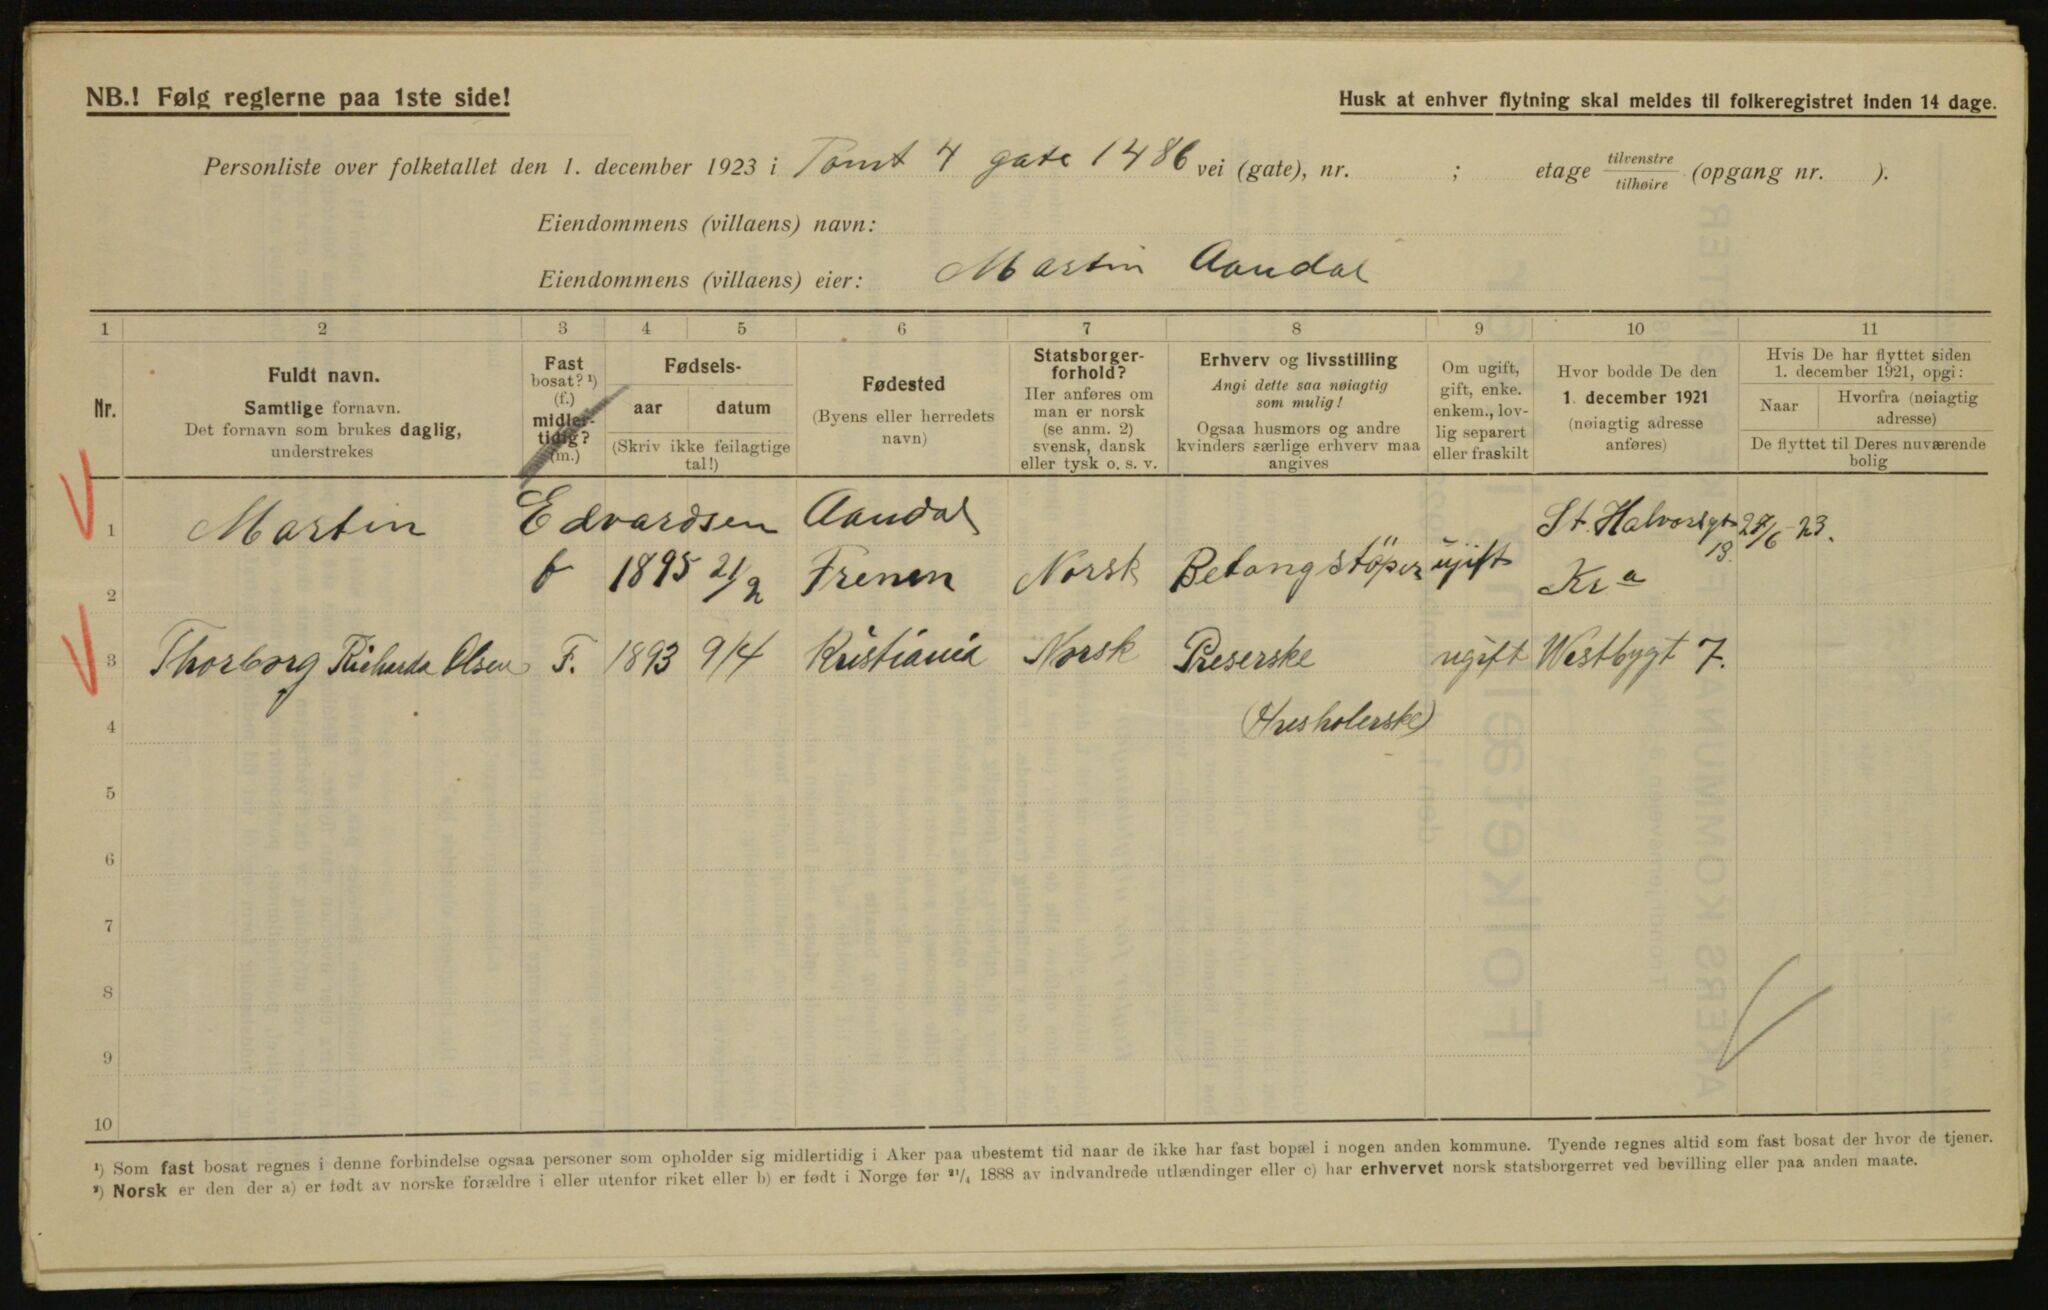 NB.! Følg reglerne paa 1ste side!
Husk at enhver flytning skal meldes til folkeregistret inden 14 dage.
Personliste over folketallet den 1. december 1923 i Tomt 4 gate 1486 vei (gate), nr. ; etage tilvenstre/tilhøire (opgang nr. ).
Eiendommens (villaens) navn:
Eiendommens (villaens) eier: Martin Aandal
1 2 3 4 5 6 7 8 9 10 11
Nr.
Fuldt navn.
Samtlige fornavn.
Det fornavn som brukes daglig,
understrekes
Fast
bosat? ¹)
(f.)
midler-
tidig?
(m.)
Fødsels-
aar datum
(Skriv ikke feilagtige
tal!)
Fødested
(Byens eller herredets
navn)
Statsborger-
forhold?
Her anføres om
man er norsk
(se anm. 2)
svensk, dansk
eller tysk o. s. v.
Erhverv og livsstilling
Angi dette saa nøiagtig
som mulig!
Ogsaa husmors og andre
kvinders særlige erhverv maa
angives
Om ugift,
gift, enke.
enkem., lov-
lig separert
eller fraskilt
Hvor bodde De den
1. december 1921
(nøiagtig adresse
anføres)
Hvis De har flyttet siden
1. december 1921, opgi:
Naar Hvorfra (nøiagtig
adresse)
De flyttet til Deres nuværende
bolig
1 Martin Edvardsen Aandal St. Halvorsgt 13. 27/6-23.
2 f 1895 21/2 Frenen Norsk Betongstöper ugift Kra
3 Thorborg Richarda Olsen F. 1893 9/4 Kristiania Norsk Preserske ugift Westbygt 7.
4 (Husholerske)
5
6
7
8
9
10
¹) Som fast bosat regnes i denne forbindelse ogsaa personer som opholder sig midlertidig i Aker paa ubestemt tid naar de ikke har fast bopæl i nogen anden kommune. Tyende regnes altid som fast bosat der hvor de tjener.
²) Norsk er den der a) er født av norske forældre i eller utenfor riket eller b) er født i Norge før ²¹/₄ 1888 av indvandrede utlændinger eller c) har erhvervet norsk statsborgerret ved bevilling eller paa anden maate.